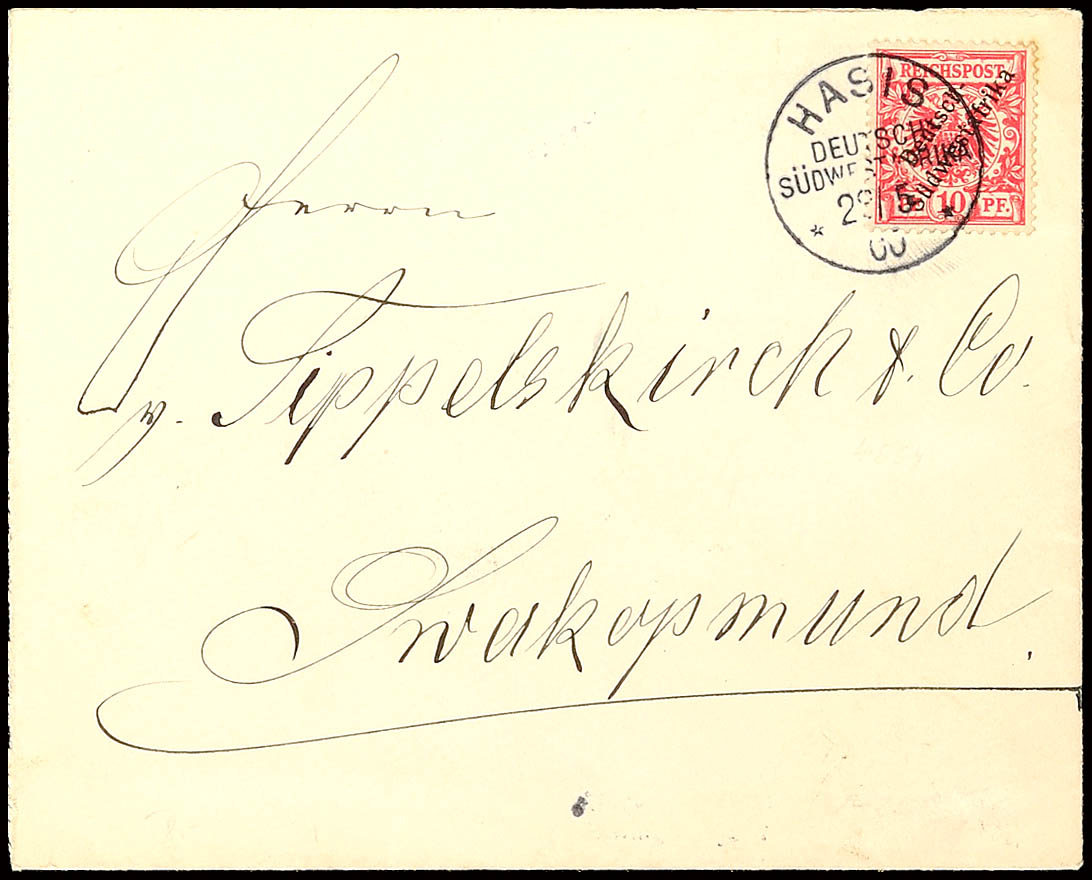 HASIS
DEUTSCH-
SÜDWESTAFRIKA
29 5
00
REICHSPOST
Deutsch-
Südwestafrika
10 PF.
Herrn
v. Tippelskirch & Co.
Swakopmund.